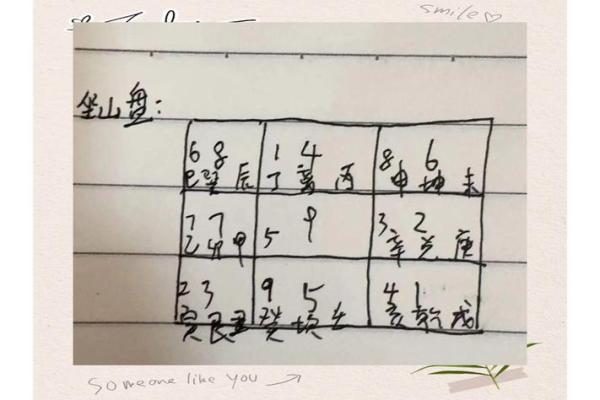 smile
坐山盘:
6 8 1 4 8 6
巳巽辰 丁离丙 申坤未
7 7 9 3 2
乙卯甲 5 辛兑庚
2 3 9 5 4 1
寅艮丑 癸坎壬 亥乾戌
someone like you